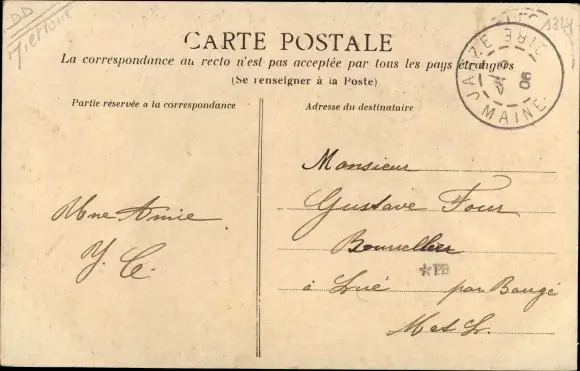 DD
1324
CARTE POSTALE
La correspondance au recto n'est pas acceptée par tous les pays étrangers
(Se renseigner à la Poste)
Partie réservée a la correspondance
Adresse du destinataire
JARZE
06
MAINE
Une Amie
Y. C.
Monsieur
Gustave Four
Bourrellier
à Lué par Baugé
M et L.
★PB